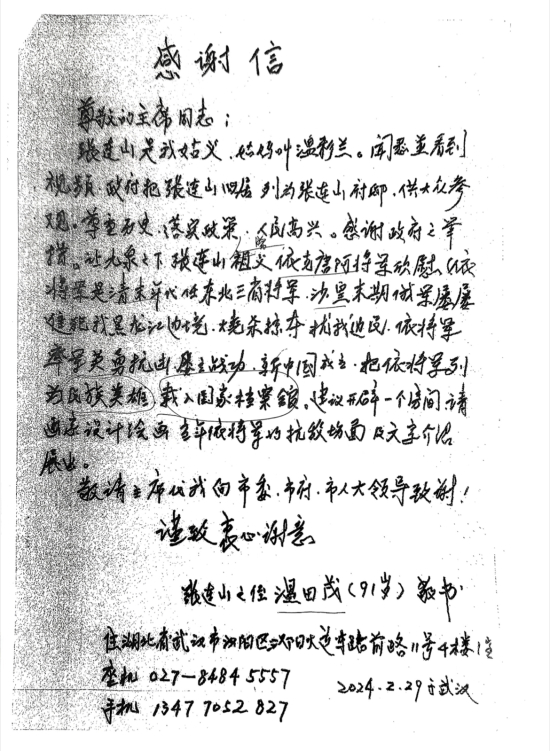 感谢信
尊敬的主席同志：
张连山是我姑父，姑母叫温彩兰。闻悉并看到
视频，政府把张连山旧居列为张连山府邸，供大众参
观。尊重历史，落实政策，人民高兴。感谢政府之举
措。让九泉之下张连山祖父依克唐阿将军欣慰（依
将军是清末年代任东北三省将军，沙皇末期俄军屡屡
侵犯我黑龙江边境，烧杀掠夺扰我边民，依将军
率军英勇抗击，屡立战功，新中国成立，把依将军列
为民族英雄，载入国家档案馆。建议开辟一个房间，请
画家设计绘画当年依将军的抗敌场面及文字介绍
展出。
敬请主席代我向市委、市府、市人大领导致谢！
谨致衷心谢意
张连山之侄温田茂（91岁）敬书
住湖北省武汉市汉阳区汉阳大道车站前路11号4楼1室
座机 027-8484 5557
2024.2.29于武汉
手机 1347 7052 827